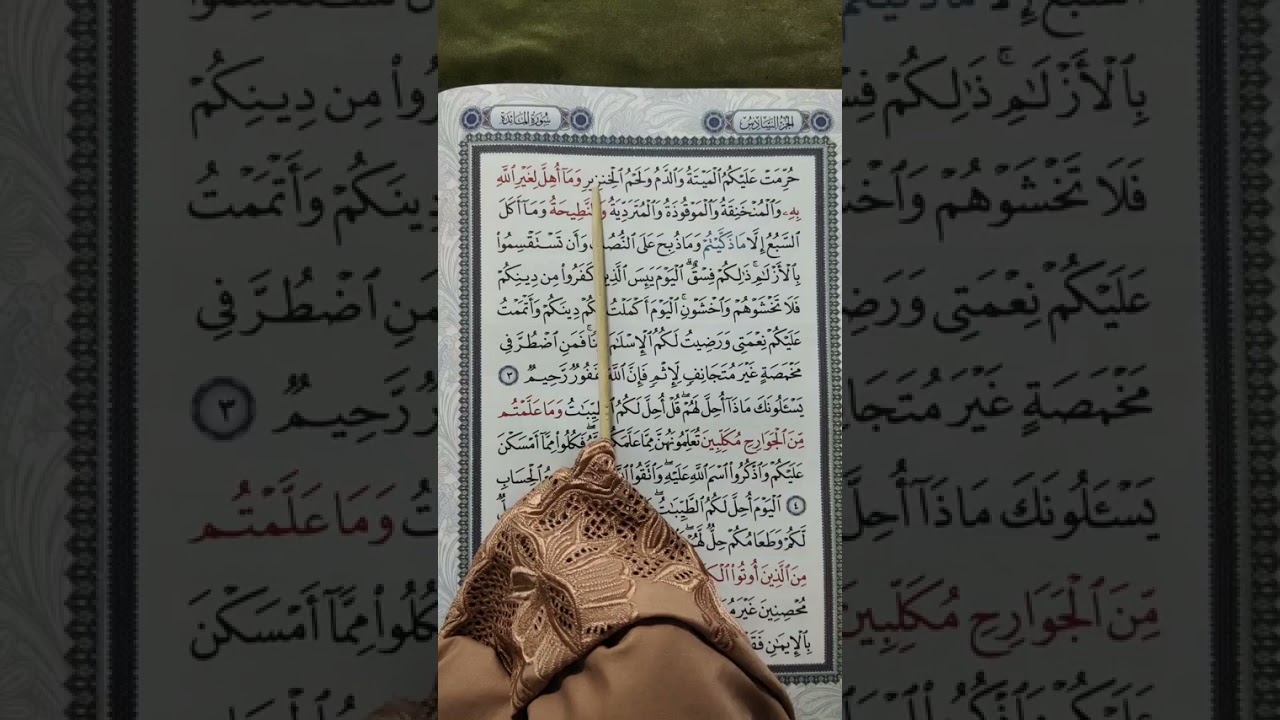 الجزء السادس
سورة المائدة
حُرِّمَتْ عَلَيْكُمُ ٱلْمَيْتَةُ وَٱلدَّمُ وَلَحْمُ ٱلْخِنزِيرِ وَمَآ أُهِلَّ لِغَيْرِ ٱللَّهِ
بِهِۦ وَٱلْمُنْخَنِقَةُ وَٱلْمَوْقُوذَةُ وَٱلْمُتَرَدِّيَةُ وَٱلنَّطِيحَةُ وَمَآ أَكَلَ
ٱلسَّبُعُ إِلَّا مَا ذَكَّيْتُمْ وَمَا ذُبِحَ عَلَى ٱلنُّصُبِ وَأَن تَسْتَقْسِمُوا۟
بِٱلْأَزْلَٰمِ ۚ ذَٰلِكُمْ فِسْقٌ ۗ ٱلْيَوْمَ يَئِسَ ٱلَّذِينَ كَفَرُوا۟ مِن دِينِكُمْ
فَلَا تَخْشَوْهُمْ وَٱخْشَوْنِ ۚ ٱلْيَوْمَ أَكْمَلْتُ لَكُمْ دِينَكُمْ وَأَتْمَمْتُ
عَلَيْكُمْ نِعْمَتِى وَرَضِيتُ لَكُمُ ٱلْإِسْلَٰمَ فَمَنِ ٱضْطُرَّ فِى
مَخْمَصَةٍ غَيْرَ مُتَجَانِفٍ لِّإِثْمٍ فَإِنَّ ٱللَّهَ غَفُورٌ رَّحِيمٌ ٣
يَسْـَٔلُونَكَ مَاذَآ أُحِلَّ لَهُمْ ۖ قُلْ أُحِلَّ لَكُمُ ٱلطَّيِّبَٰتُ وَمَا عَلَّمْتُم
مِّنَ ٱلْجَوَارِحِ مُكَلِّبِينَ تُعَلِّمُونَهُنَّ مِمَّا عَلَّمَكُمُ فَكُلُوا۟ مِمَّآ أَمْسَكْنَ
عَلَيْكُمْ وَٱذْكُرُوا۟ ٱسْمَ ٱللَّهِ عَلَيْهِ ۖ وَٱتَّقُوا۟ ٱلْحِسَابِ
٤ ٱلْيَوْمَ أُحِلَّ لَكُمُ ٱلطَّيِّبَٰتُ ۖ
لَّكُمْ وَطَعَامُكُمْ حِلٌّ لَّهُمْ ۖ
مِنَ ٱلَّذِينَ أُوتُوا۟
مُحْصِنِينَ غَيْرَ
بِٱلْإِيمَٰنِ